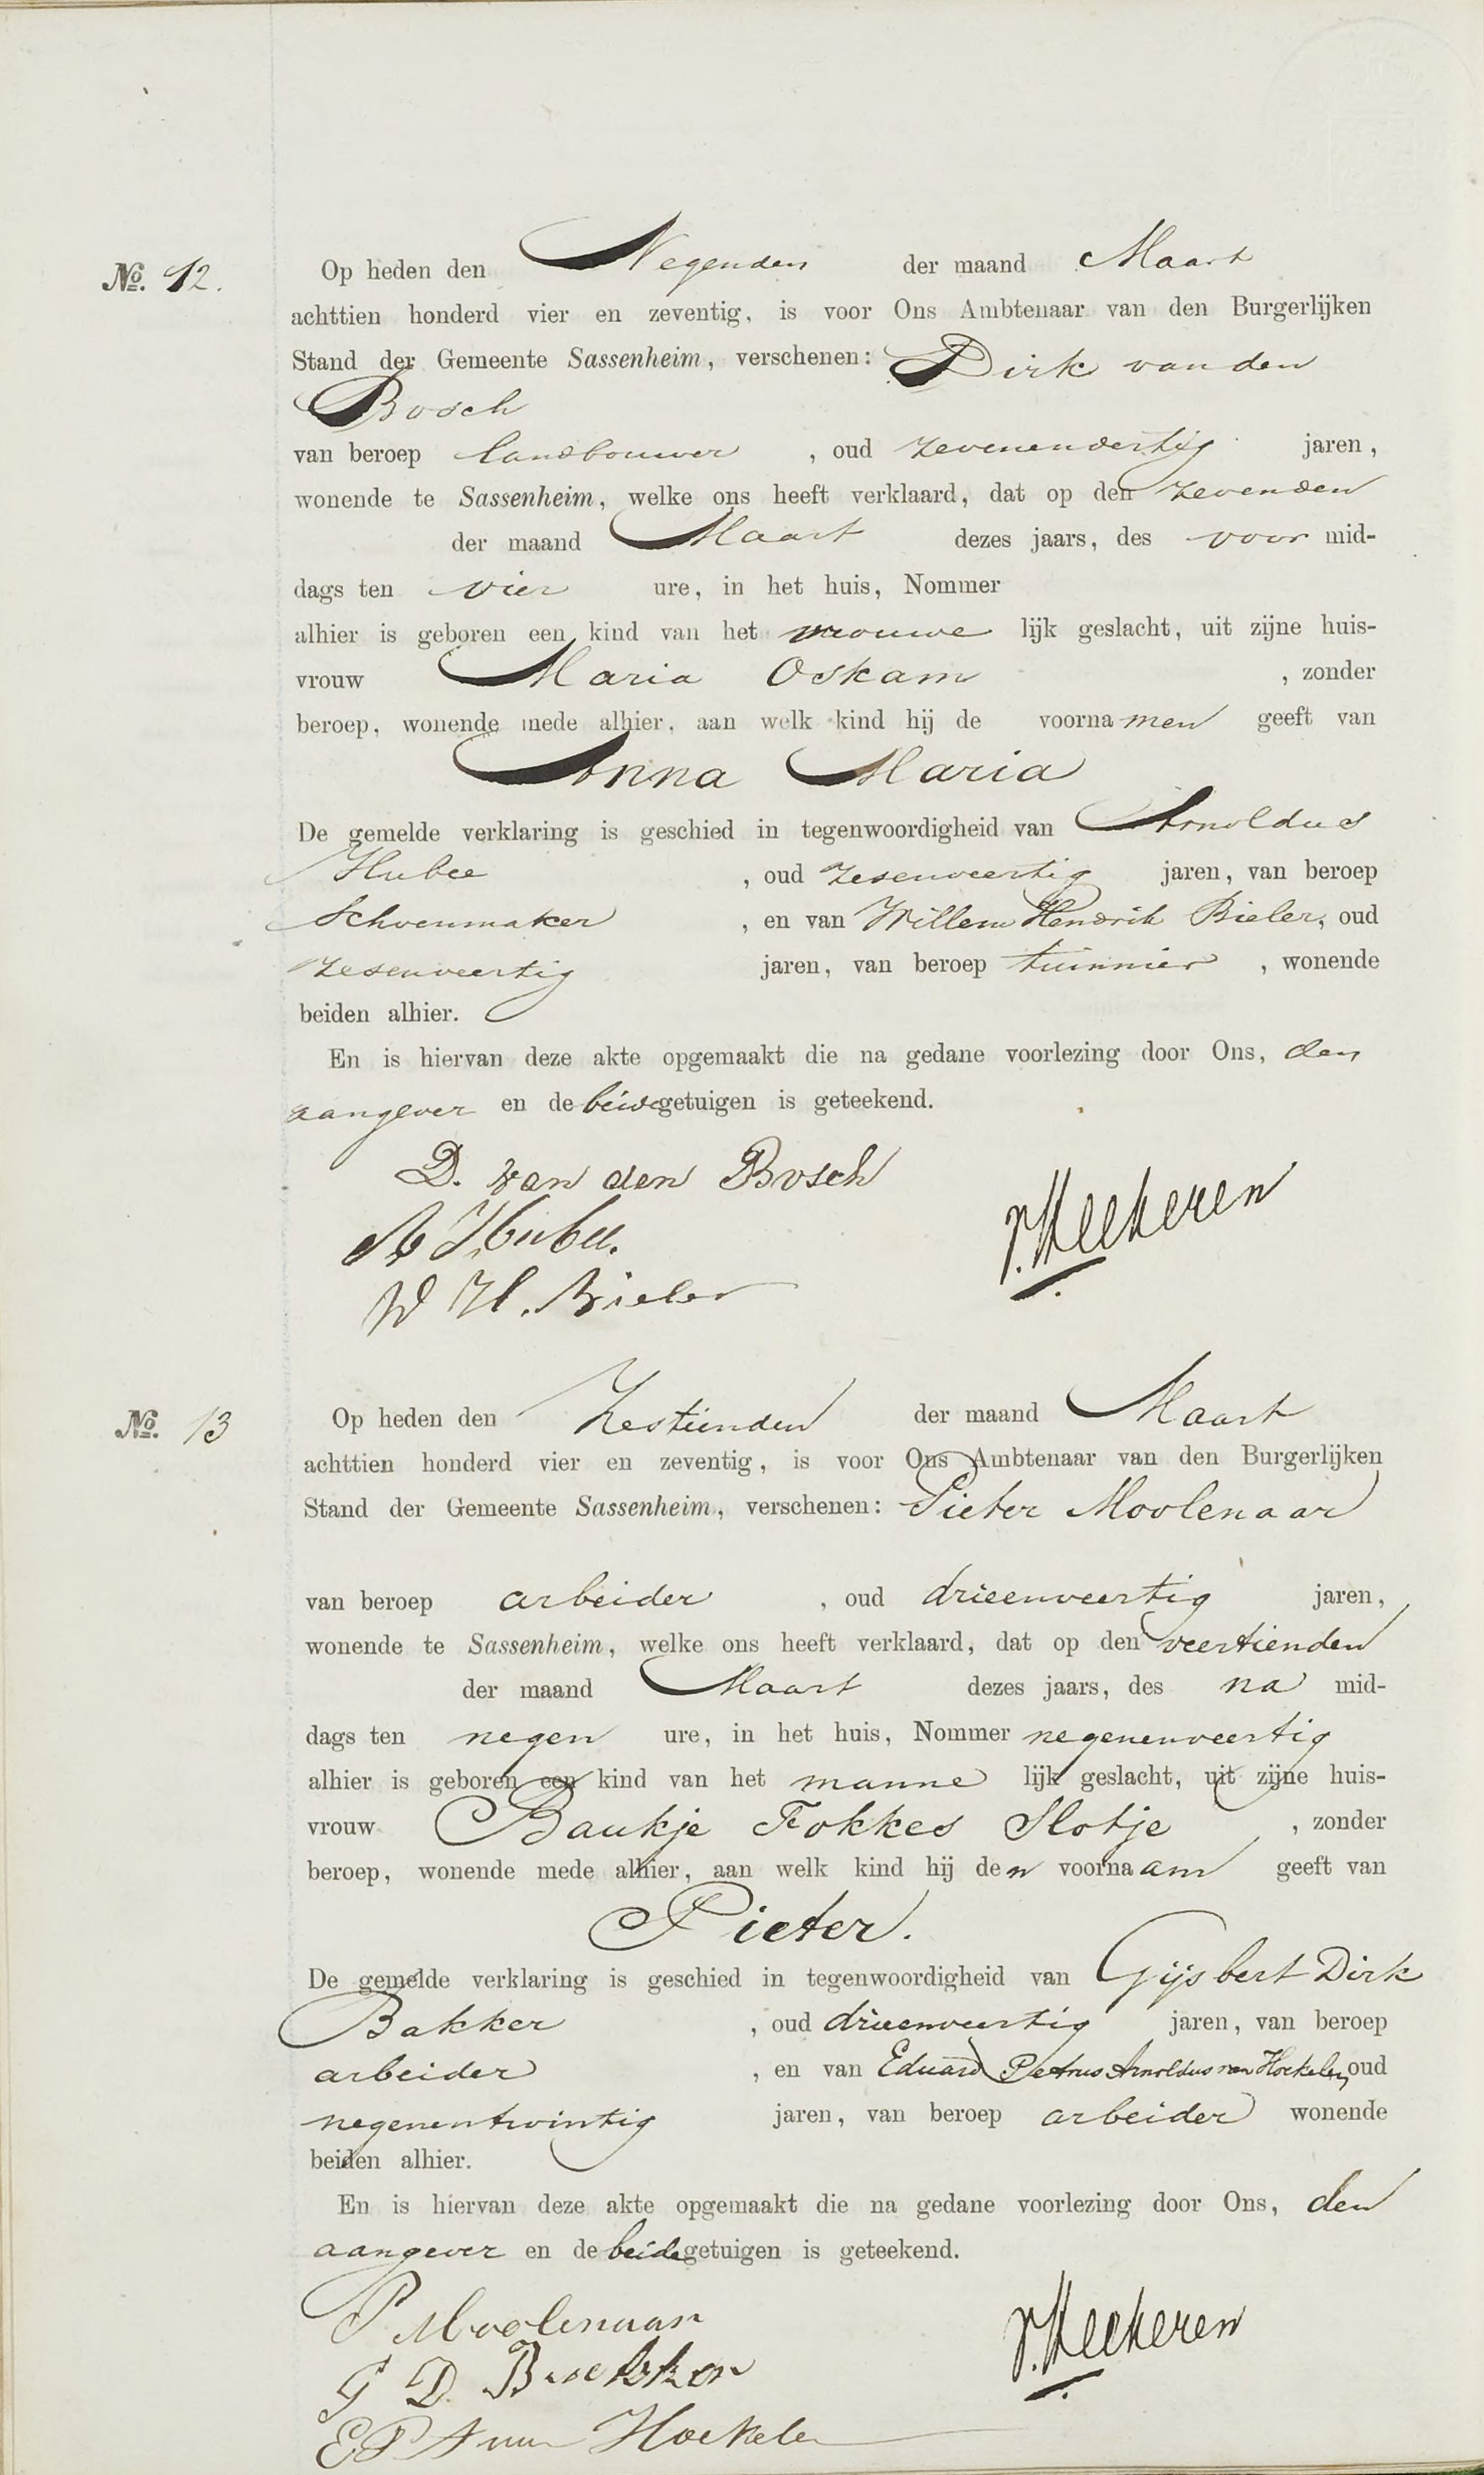 No. 12.
Op heden den Negenden der maand Maart
achttien honderd vier en zeventig, is voor Ons Ambtenaar van den Burgerlijken
Stand der Gemeente Sassenheim, verschenen: Dirk van den
Bosch
van beroep landbouwer , oud zevenendertig jaren,
wonende te Sassenheim, welke ons heeft verklaard, dat op den zevenden
der maand Maart dezes jaars, des voor mid-
dags ten vier ure, in het huis, Nommer
alhier is geboren een kind van het vrouwe lijk geslacht, uit zijne huis-
vrouw Maria Oskam , zonder
beroep, wonende mede alhier, aan welk kind hij de voornamen geeft van
Anna Maria
De gemelde verklaring is geschied in tegenwoordigheid van Arnoldus
Hubee , oud zesenveertig jaren, van beroep
Schoenmaker , en van Willem Hendrik Bieler, oud
zesenveertig jaren, van beroep tuinnier , wonende
beiden alhier.
En is hiervan deze akte opgemaakt die na gedane voorlezing door Ons, den
aangever en de beide getuigen is geteekend.
D. van den Bosch
A Hubee.
v. Heekeren
W H. Bieler
No. 13
Op heden den Zestienden der maand Maart
achttien honderd vier en zeventig, is voor Ons Ambtenaar van den Burgerlijken
Stand der Gemeente Sassenheim, verschenen: Pieter Moolenaar
van beroep arbeider , oud drieenveertig jaren,
wonende te Sassenheim, welke ons heeft verklaard, dat op den veertienden
der maand Maart dezes jaars, des na mid-
dags ten negen ure, in het huis, Nommer negenenveertig
alhier is geboren een kind van het manne lijk geslacht, uit zijne huis-
vrouw Baukje Fokkes Slotje , zonder
beroep, wonende mede alhier, aan welk kind hij den voornaam geeft van
Pieter.
De gemelde verklaring is geschied in tegenwoordigheid van Gijsbert Dirk
Bakker , oud drieenveertig jaren, van beroep
arbeider , en van Eduard Petrus Arnoldus van Hoekelen, oud
negenentwintig jaren, van beroep arbeider wonende
beiden alhier.
En is hiervan deze akte opgemaakt die na gedane voorlezing door Ons, den
aangever en de beide getuigen is geteekend.
P Moolenaar
v. Heekeren
G D. Bakker
E P A van Hoekelen